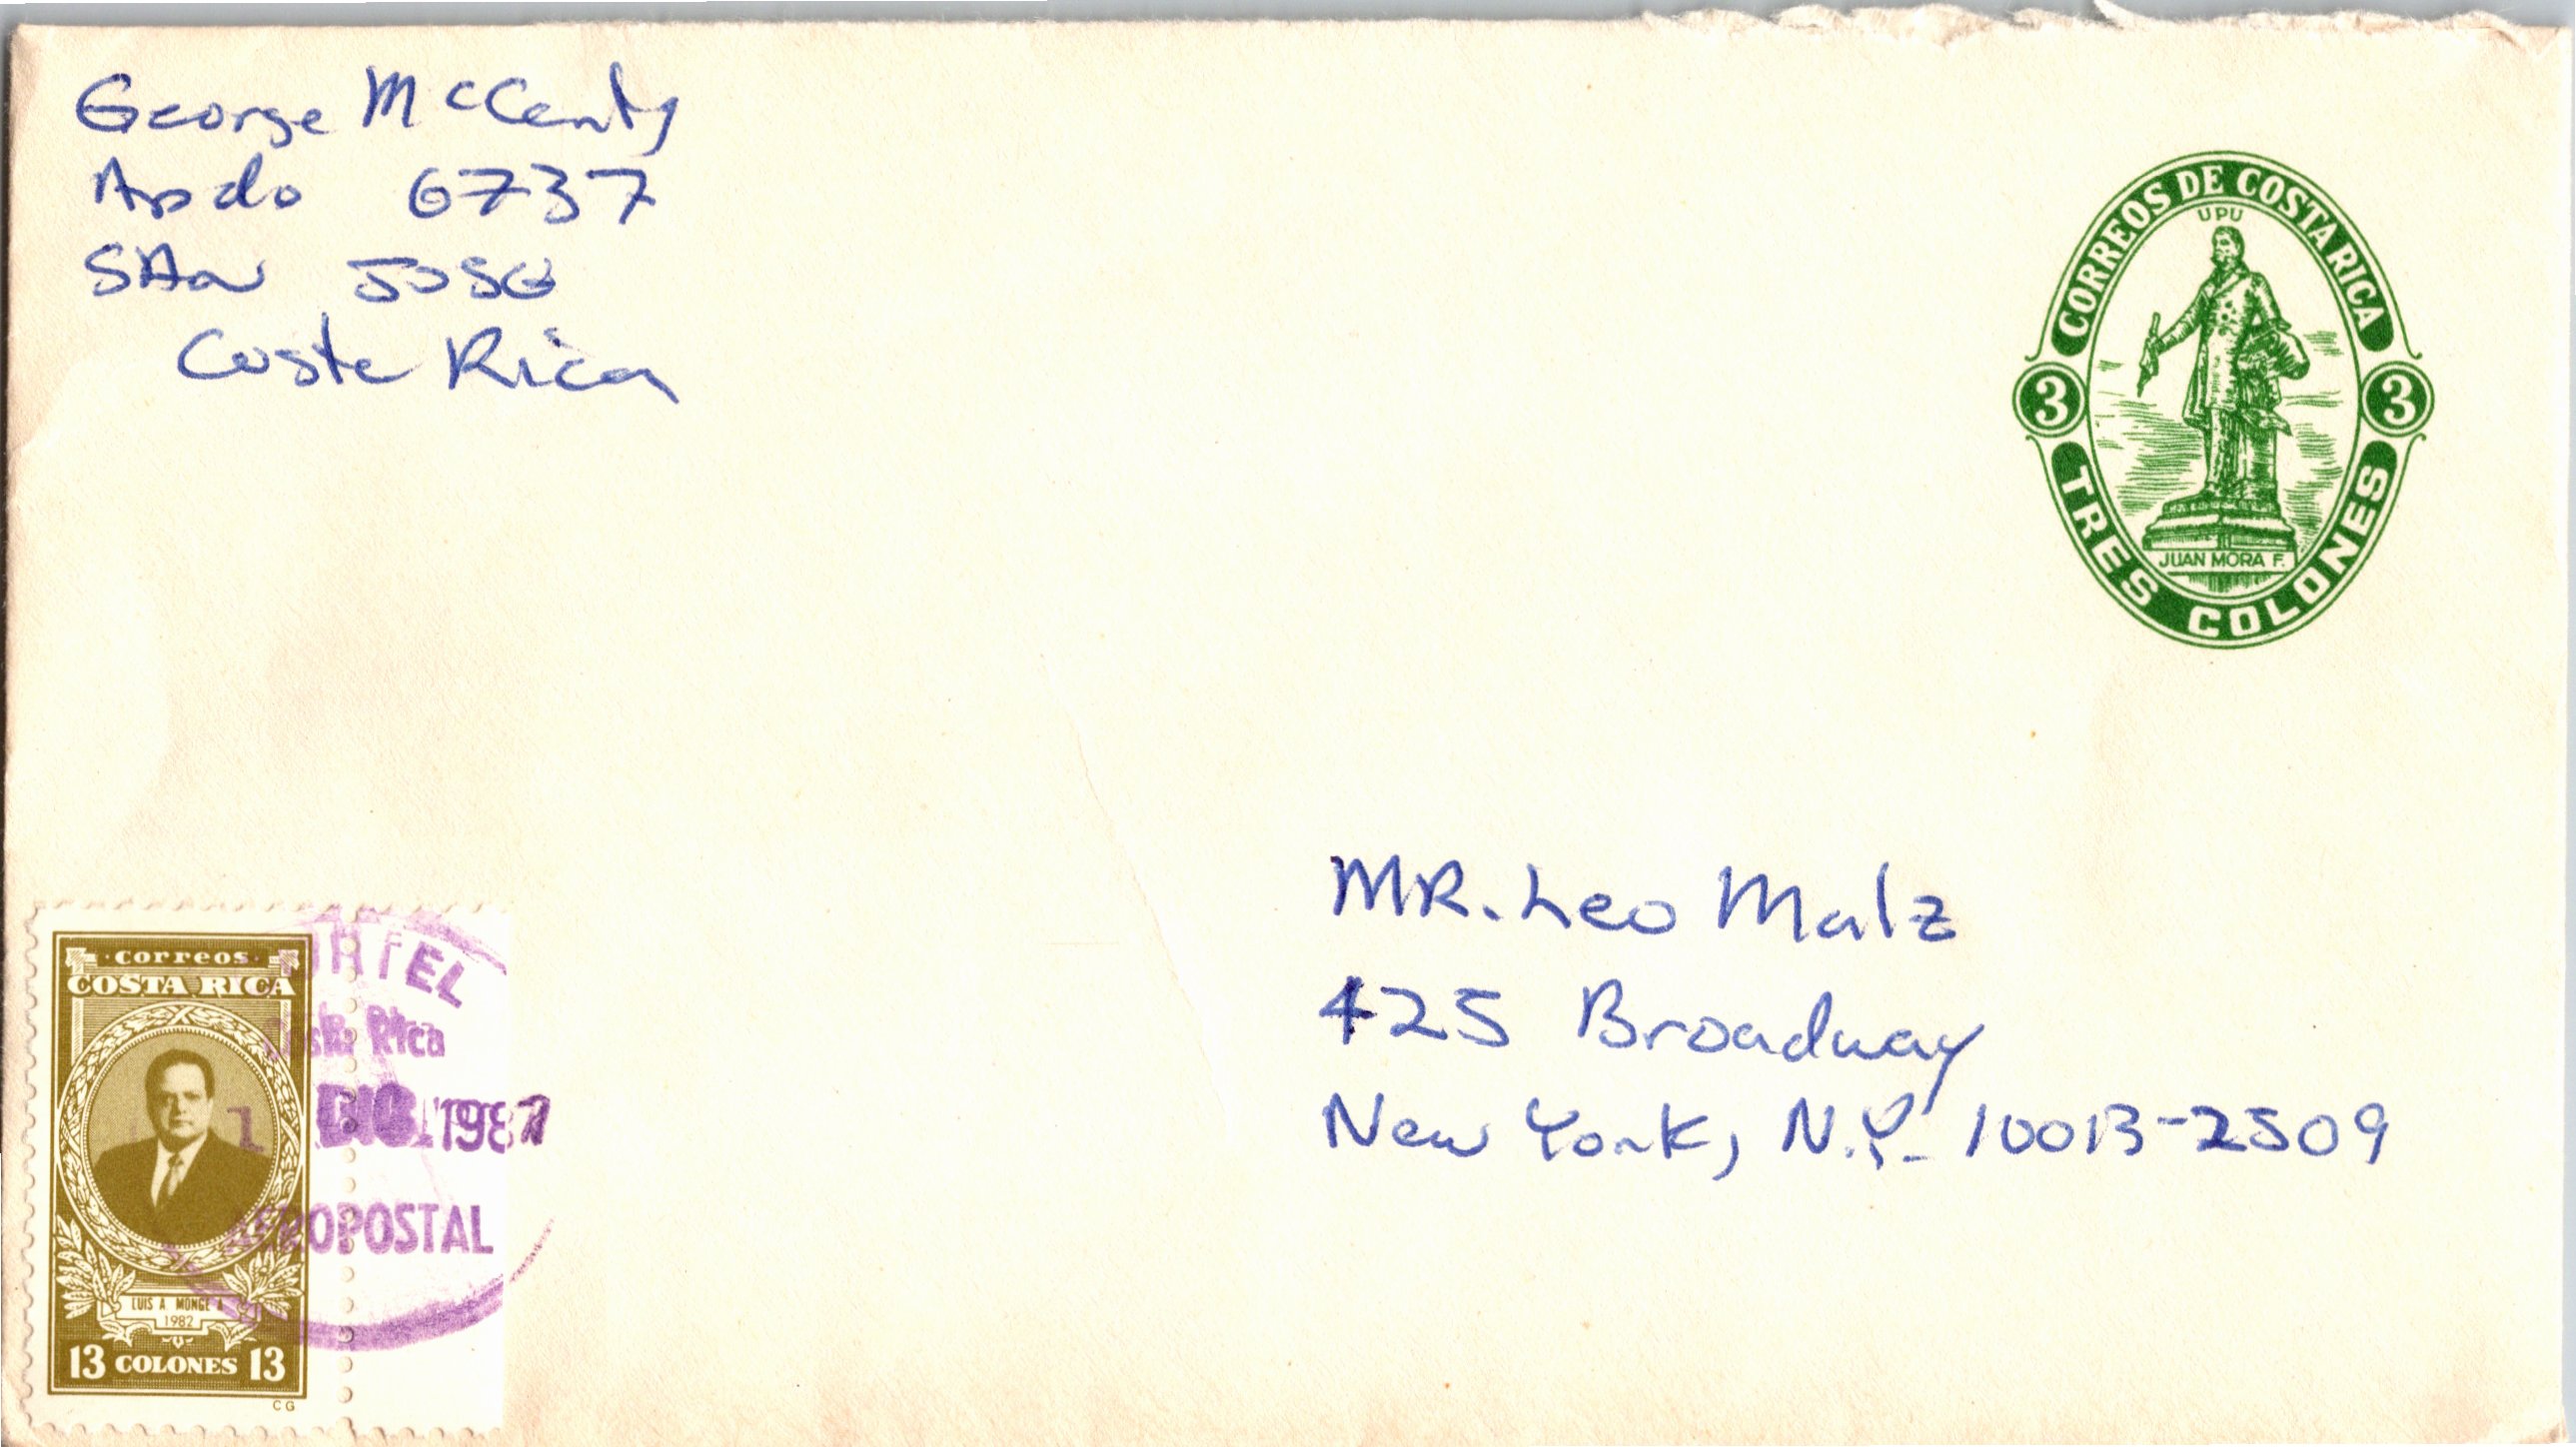 George McCenty
Apdo 6737
SAN JOSE
Costa Rica
CORREOS DE COSTA RICA
UPU
3 3
JUAN MORA F.
TRES COLONES
MR. Leo Malz
425 Broadway
New York, N.Y. 10013-2509
correos
COSTA RICA
LUIS A MONGE A
1982
13 COLONES 13
CG
Rica
1 DIC 1987
AEROPOSTAL